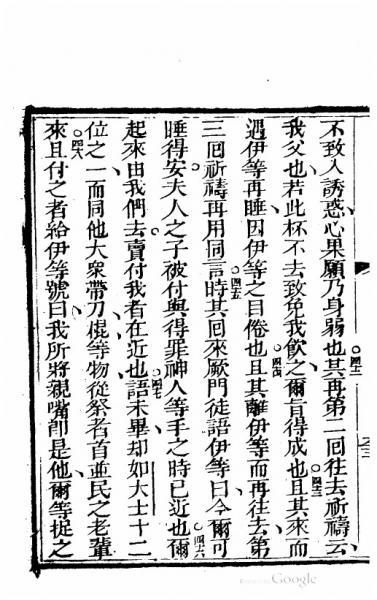 不致入誘惑心果願乃身弱也其再第二回往去祈禱云
我父也若此杯不去致免我飲之爾旨得成也且其來而
遇伊等再睡因伊等之目倦也且其離伊等而再往去第
三回祈禱再用同言時其回來厥門徒語伊等曰今爾可
睡得安夫人之子被付與得罪神人等手之時已近也爾
起來由我們去賣付我者在近也語未畢却如大士十二
位之一而同他大衆帶刀棍等物從祭者首並民之老輩
來且付之者給伊等號曰我所將親嘴卽是他爾等捉之
四二
四三
四四
四五
四六
四七
四八
Google